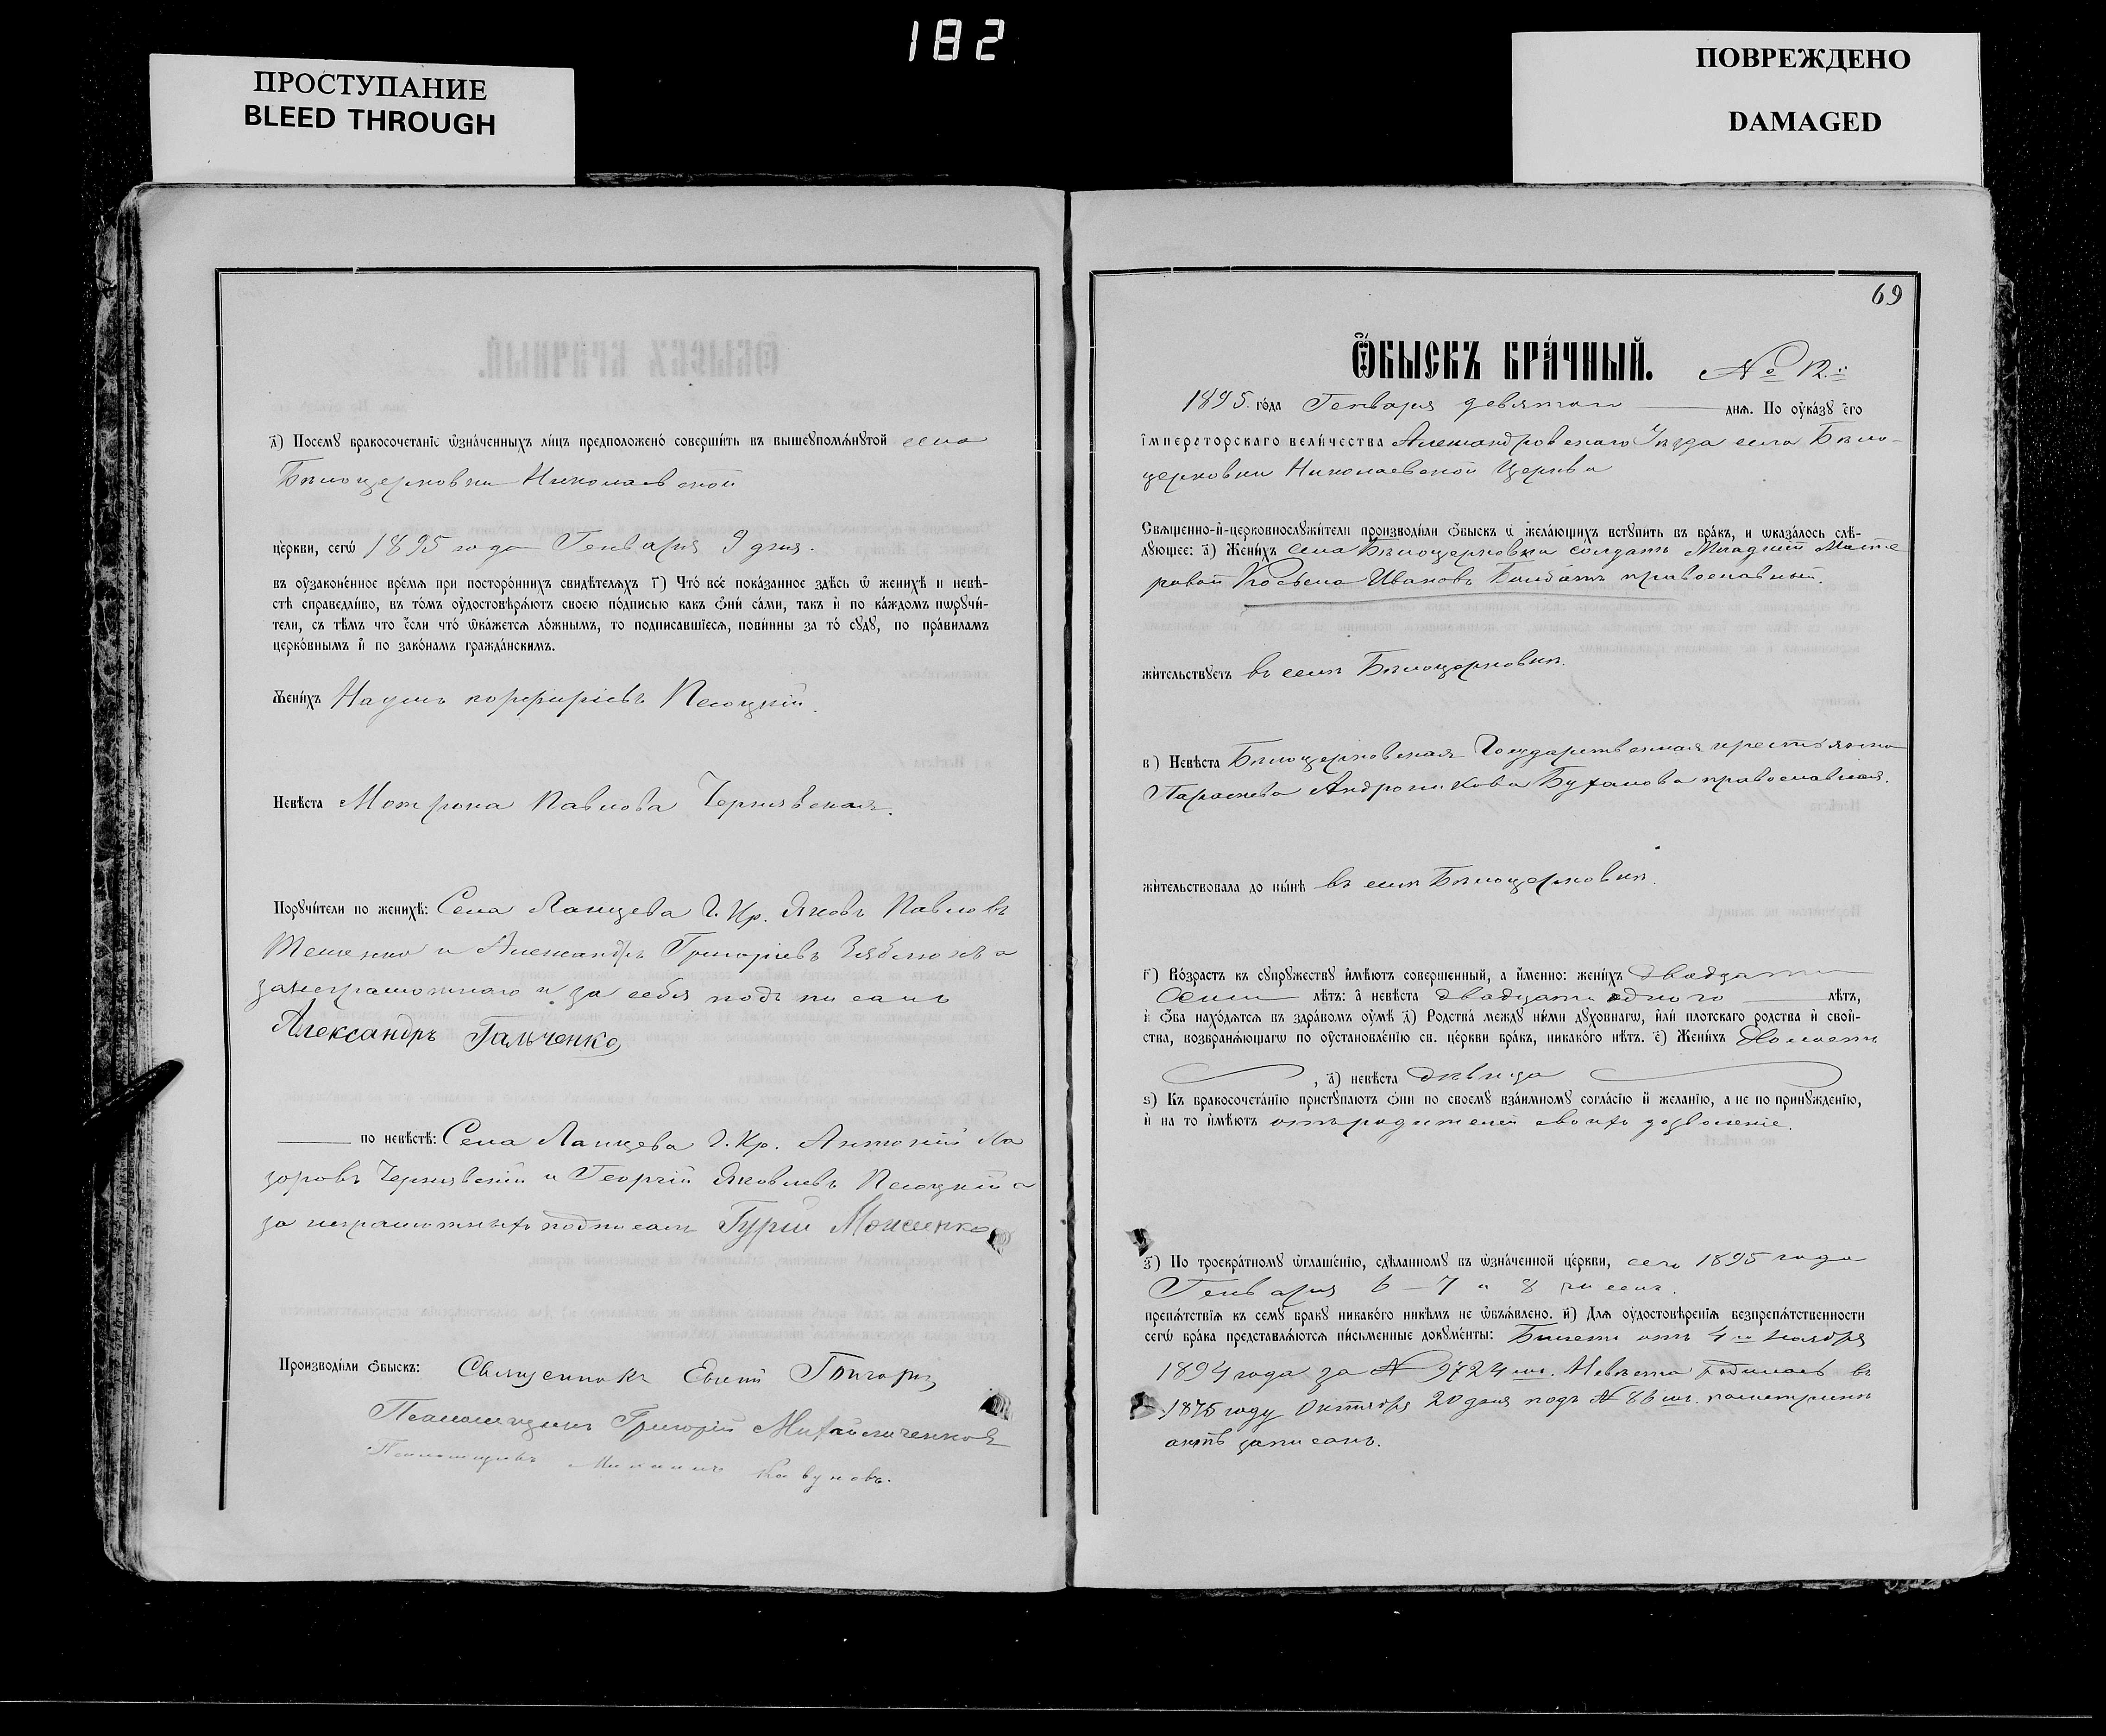 182
ПРОСТУПАНИЕ
BLEED THROUGH
ПОВРЕЖДЕНО
DAMAGED
д҃) Посемꙋ бракосочетаніе ѡзна́ченныхъ ли́цъ предположено̀ соверши́ть въ вышеꙋпомѧ́нꙋтой села
Бѣлоцерковки Николаевской
це́ркви, сегѡ̀ 1895 года Генваря 9 дня.
въ оу҆зако́ненное вре́мѧ при посторо́ннихъ свидѣ́телѧхъ г҃) Что̀ всѐ пока́занное здѣ́сь ѡ҆ женихѣ̀ и невѣ́-
стѣ справедли́во, въ то́мъ оу҆достовѣрѧ́ютъ своею по́дписью какъ ѻ҆нѝ са́ми, такъ и҆ по ка́ждомъ порꙋчи́-
тели, съ тѣ́мъ что є҆́сли что̀ ѡ҆ка́жетсѧ ло́жнымъ, то подписавшїесѧ, пови́нны за то̀ сꙋдꙋ̀, по пра́виламъ
церко́внымъ и҆ по зако́намъ гражда́нскимъ.
Жени́хъ Наумъ порфиріевъ Песоцкій.
Невѣ́ста Мотрона Павлова Чернявская.
Порꙋчи́тели по женихѣ̀: Села Ланцева Г. Кр. Яковъ Павловъ
и Александръ Григорьевъ а
занеграмотнаго и за себя подписалъ
Александръ Гальченко
по невѣ́стѣ: Села Ланцева Г. Кр. Антоній Ла
заровъ Чернявскій и Георгій Яковлевъ Песоцкій а
за неграмотныхъ подписалъ Гурій Мойсенко
Производи́ли ѻ҆́быскъ: Священникъ Евгеній
Псаломщикъ Григорій Михайличенковъ
Псаломщикъ Кавуновъ.
69
Ѻ҆́быскъ бра́чный. № 12.й
1895. го́да Генваря девятого днѧ. По оу҆ка́зꙋ є҆гѡ̀
і҆мпера́торскаго вели́чества Александровскаго Уѣзда села Бѣло-
церковки Николаевской Церкви
Свѧщенно-и҆-церковнослꙋжи́тели производи́ли ѻ҆́быскъ ѡ҆ жела́ющихъ встꙋпи́ть въ бра́къ, и ѡ҆каза́лось слѣ́-
дꙋющее: а҃) Жени́хъ села Бѣлоцерковки солдатъ Младшій Масте
ровой Косьма Ивановъ православный.
жи́тельствꙋетъ въ селѣ Бѣлоцерковкѣ.
в҃) Невѣ́ста Бѣлоцерковская Государственная крестьянка
Параскева Андроникова Буханова православная.
жи́тельствовала до ны́нѣ въ селѣ Бѣлоцерковкѣ.
г҃) Во́зрастъ къ сꙋпрꙋ́жествꙋ и҆мѣ́ютъ соверше́нный, а и҆́менно: жени́хъ двадцати
семи лѣ́тъ: а҆ невѣ́ста двадцати одного лѣ́тъ,
и҆ ѻ҆́ба нахо́дѧтсѧ въ здра́вомъ оу҆мѣ̀ д҃) Родства̀ междꙋ ни́ми дꙋхо́внагѡ, и҆лѝ плотскаго родства и҆ свой-
ства, возбранѧ́ющагѡ по оу҆становле́нїю св. це́ркви бра́къ, никако́го нѣ́тъ. є҃) Жени́хъ Холостъ
, а҃) невѣ́ста дѣвица
ѕ҃) Къ бракосочета́нїю пристꙋпа́ютъ ѻ҆нѝ по своемꙋ̀ вза́имномꙋ согла́сїю и҆ жела́нїю, а не по принꙋжде́нїю,
и҆ на то и҆мѣ́ютъ отъ родителей своихъ дозволеніе.
з҃) По троекра́тномꙋ ѡ҆глаше́нїю, сдѣ́ланномꙋ въ ѡзна́ченной це́ркви, сего 1895 года
Генваря 6 – 7 и 8 чиселъ.
препѧ́тствїѧ къ семꙋ̀ бра́кꙋ никако́го никѣ́мъ не ѡ҆б̾ѧ́влено. и҃) Длѧ̀ оу҆достовѣ́ренїѧ безпрепѧ́тственности
сегѡ̀ бра́ка представлѧ́ютсѧ пи́сьменные докꙋме́нты: Билетъ отъ 4го ноября
1894 года за № 9724мъ. Невѣста родилась въ
году Октября 20 дня подъ № 86мъ. пометрикѣ
актъ записанъ.